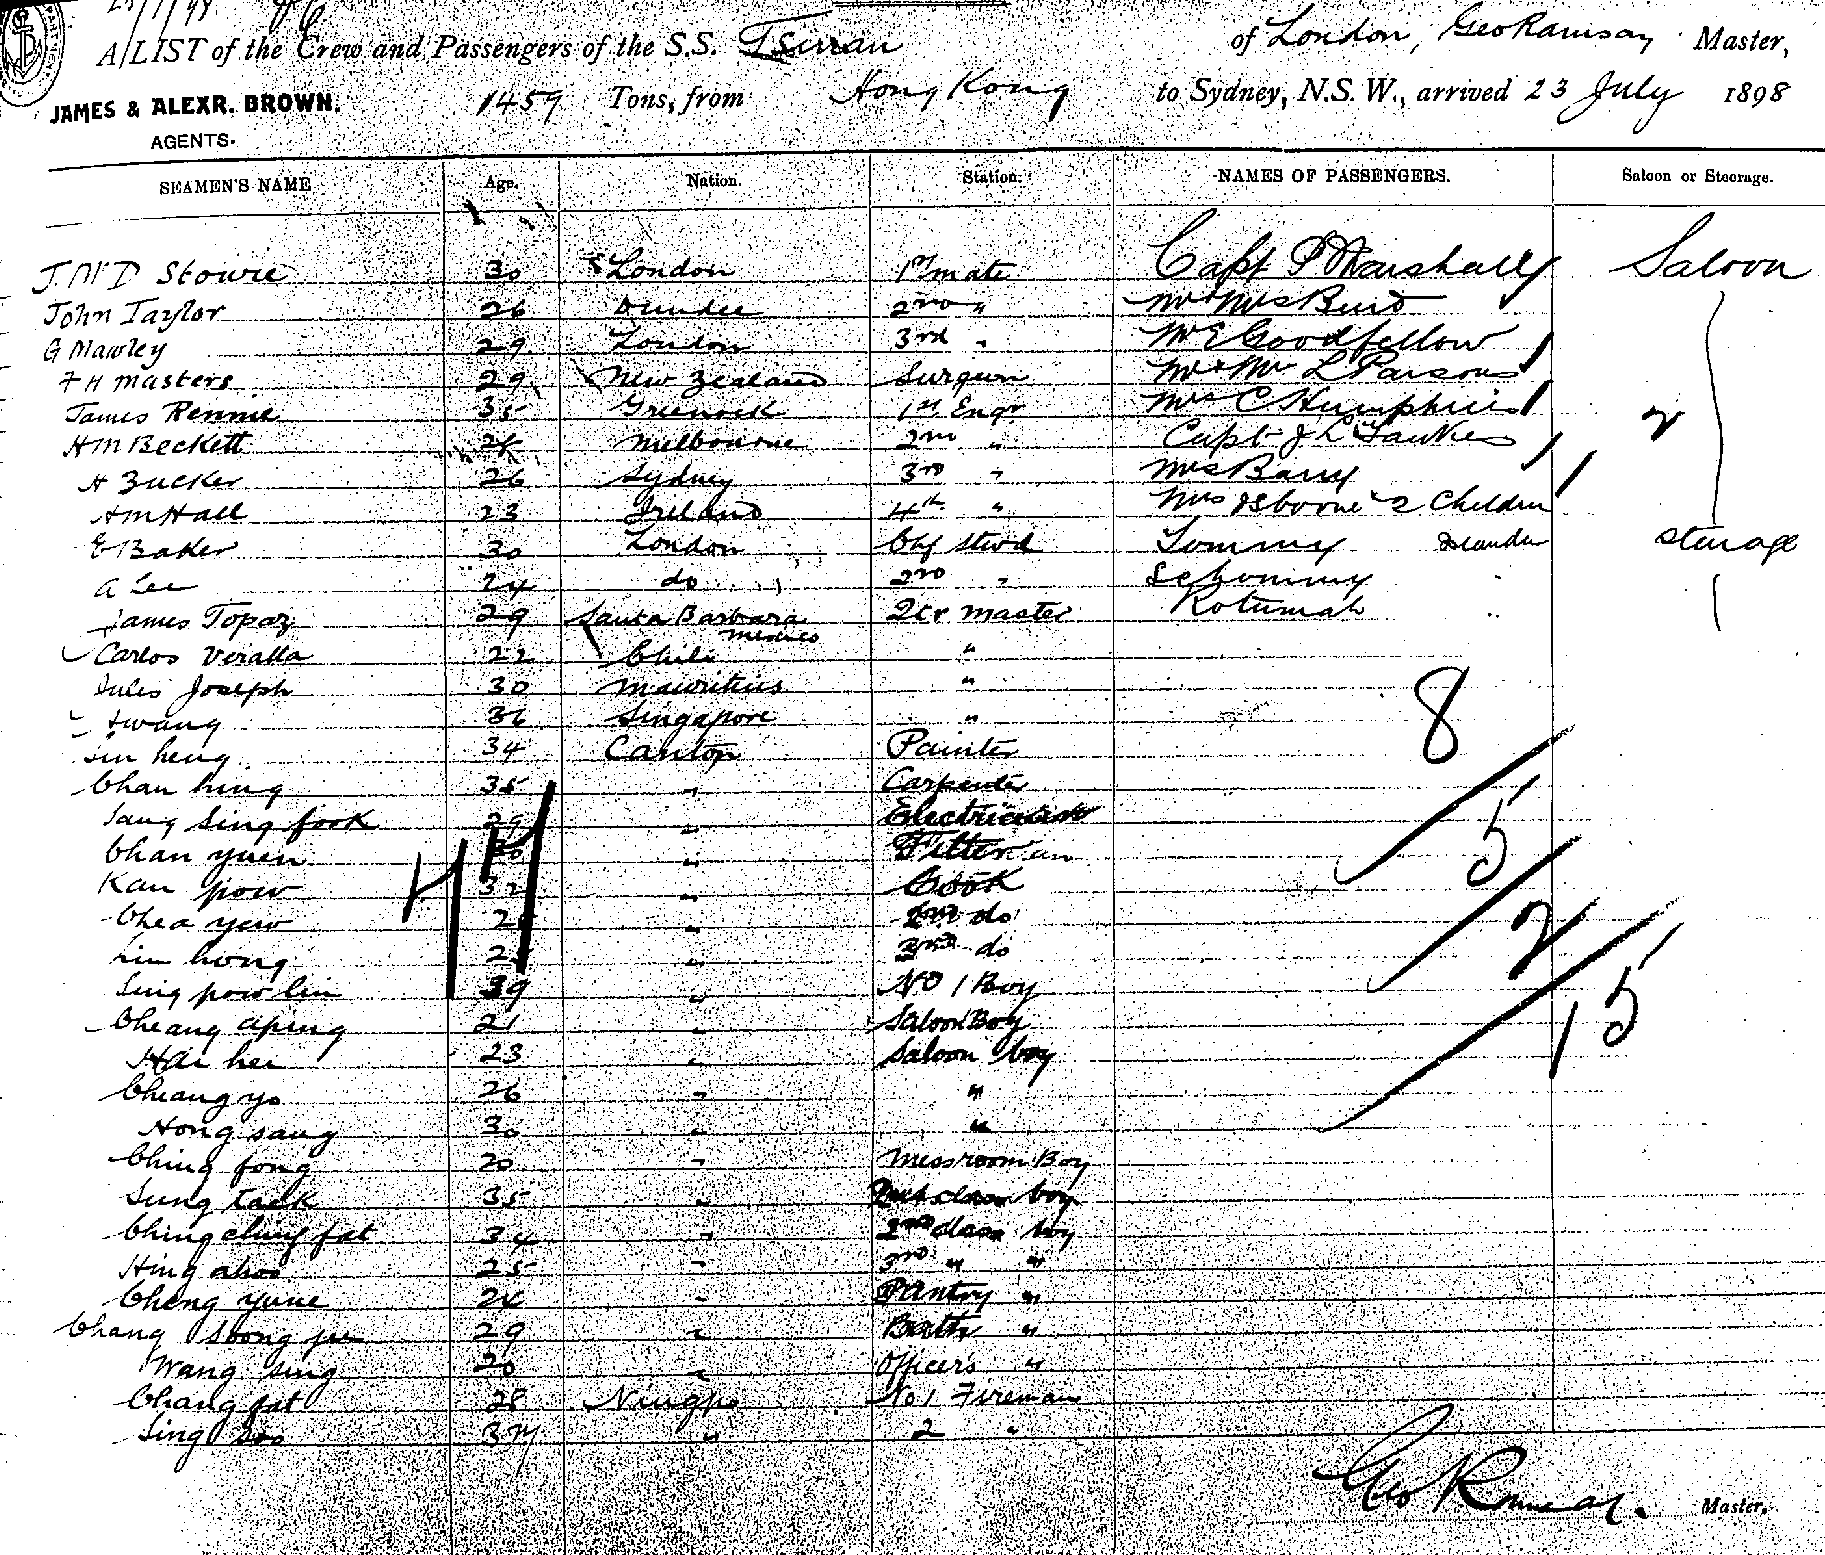 A LIST of the Crew and Passengers of the S.S. Tsinan of London, Geo Ramsay Master,
JAMES & ALEXR. BROWN. 1459 Tons, from Hong Kong to Sydney, N.S.W., arrived 23 July 1898
AGENTS.
SEAMEN'S NAME Age. Nation. Station. NAMES OF PASSENGERS. Saloon or Steerage.
30 London 1st mate Capt Marshall Saloon
John Taylor 26 Dundee 2nd "
G Mawley 29 London 3rd " Mr E Goodfellow
F H Masters 29 New Zealand Surgeon L Parsons
James Rennie 35 Greenock 1st Engr Mrs C Humphries
H M Beckett Melbourne 2nd " Capt J L
H Zucker 26 Sydney 3rd " Mrs Barry
A M Hall 23 Ireland 4th " Mrs 2 Children
E Baker 30 London Chf Stwd Tommy Islander Sterage
A Lee 24 do 2nd "
James Topaz 29 Santa Barbara Mexico Qtr Master Rotumah "
Carlos Veralla 22 Chili "
Jules Joseph 30 Mauritius " 8
Awang 36 Singapore "
heng 34 Canton Painter
Chan hing 35 " Carpenter 5
Sing fook 29 " Electrician
Chan yuen "
Kan pow 32 " Cook
Chea yew " 2nd do 2
hong " 3rd do
pow lin 39 " No 1 Boy 15
Cheang aping 21 " Saloon Boy
23 " Saloon boy
Cheang yo 26 " "
Hong sang 30 " "
Ching fong 20 " Messroom Boy
Sung tack 35 " class boy
Ching ching fat 34 " 2nd class boy
Hing ahoo 25 " 3rd " "
Cheng yune 24 " Pantry "
Chang 29 " Bath "
Wang sing 20 " Officers "
Chang fat 28 Ningpo No 1 Fireman
37 " 2 "
Geo Ramsay. Master.